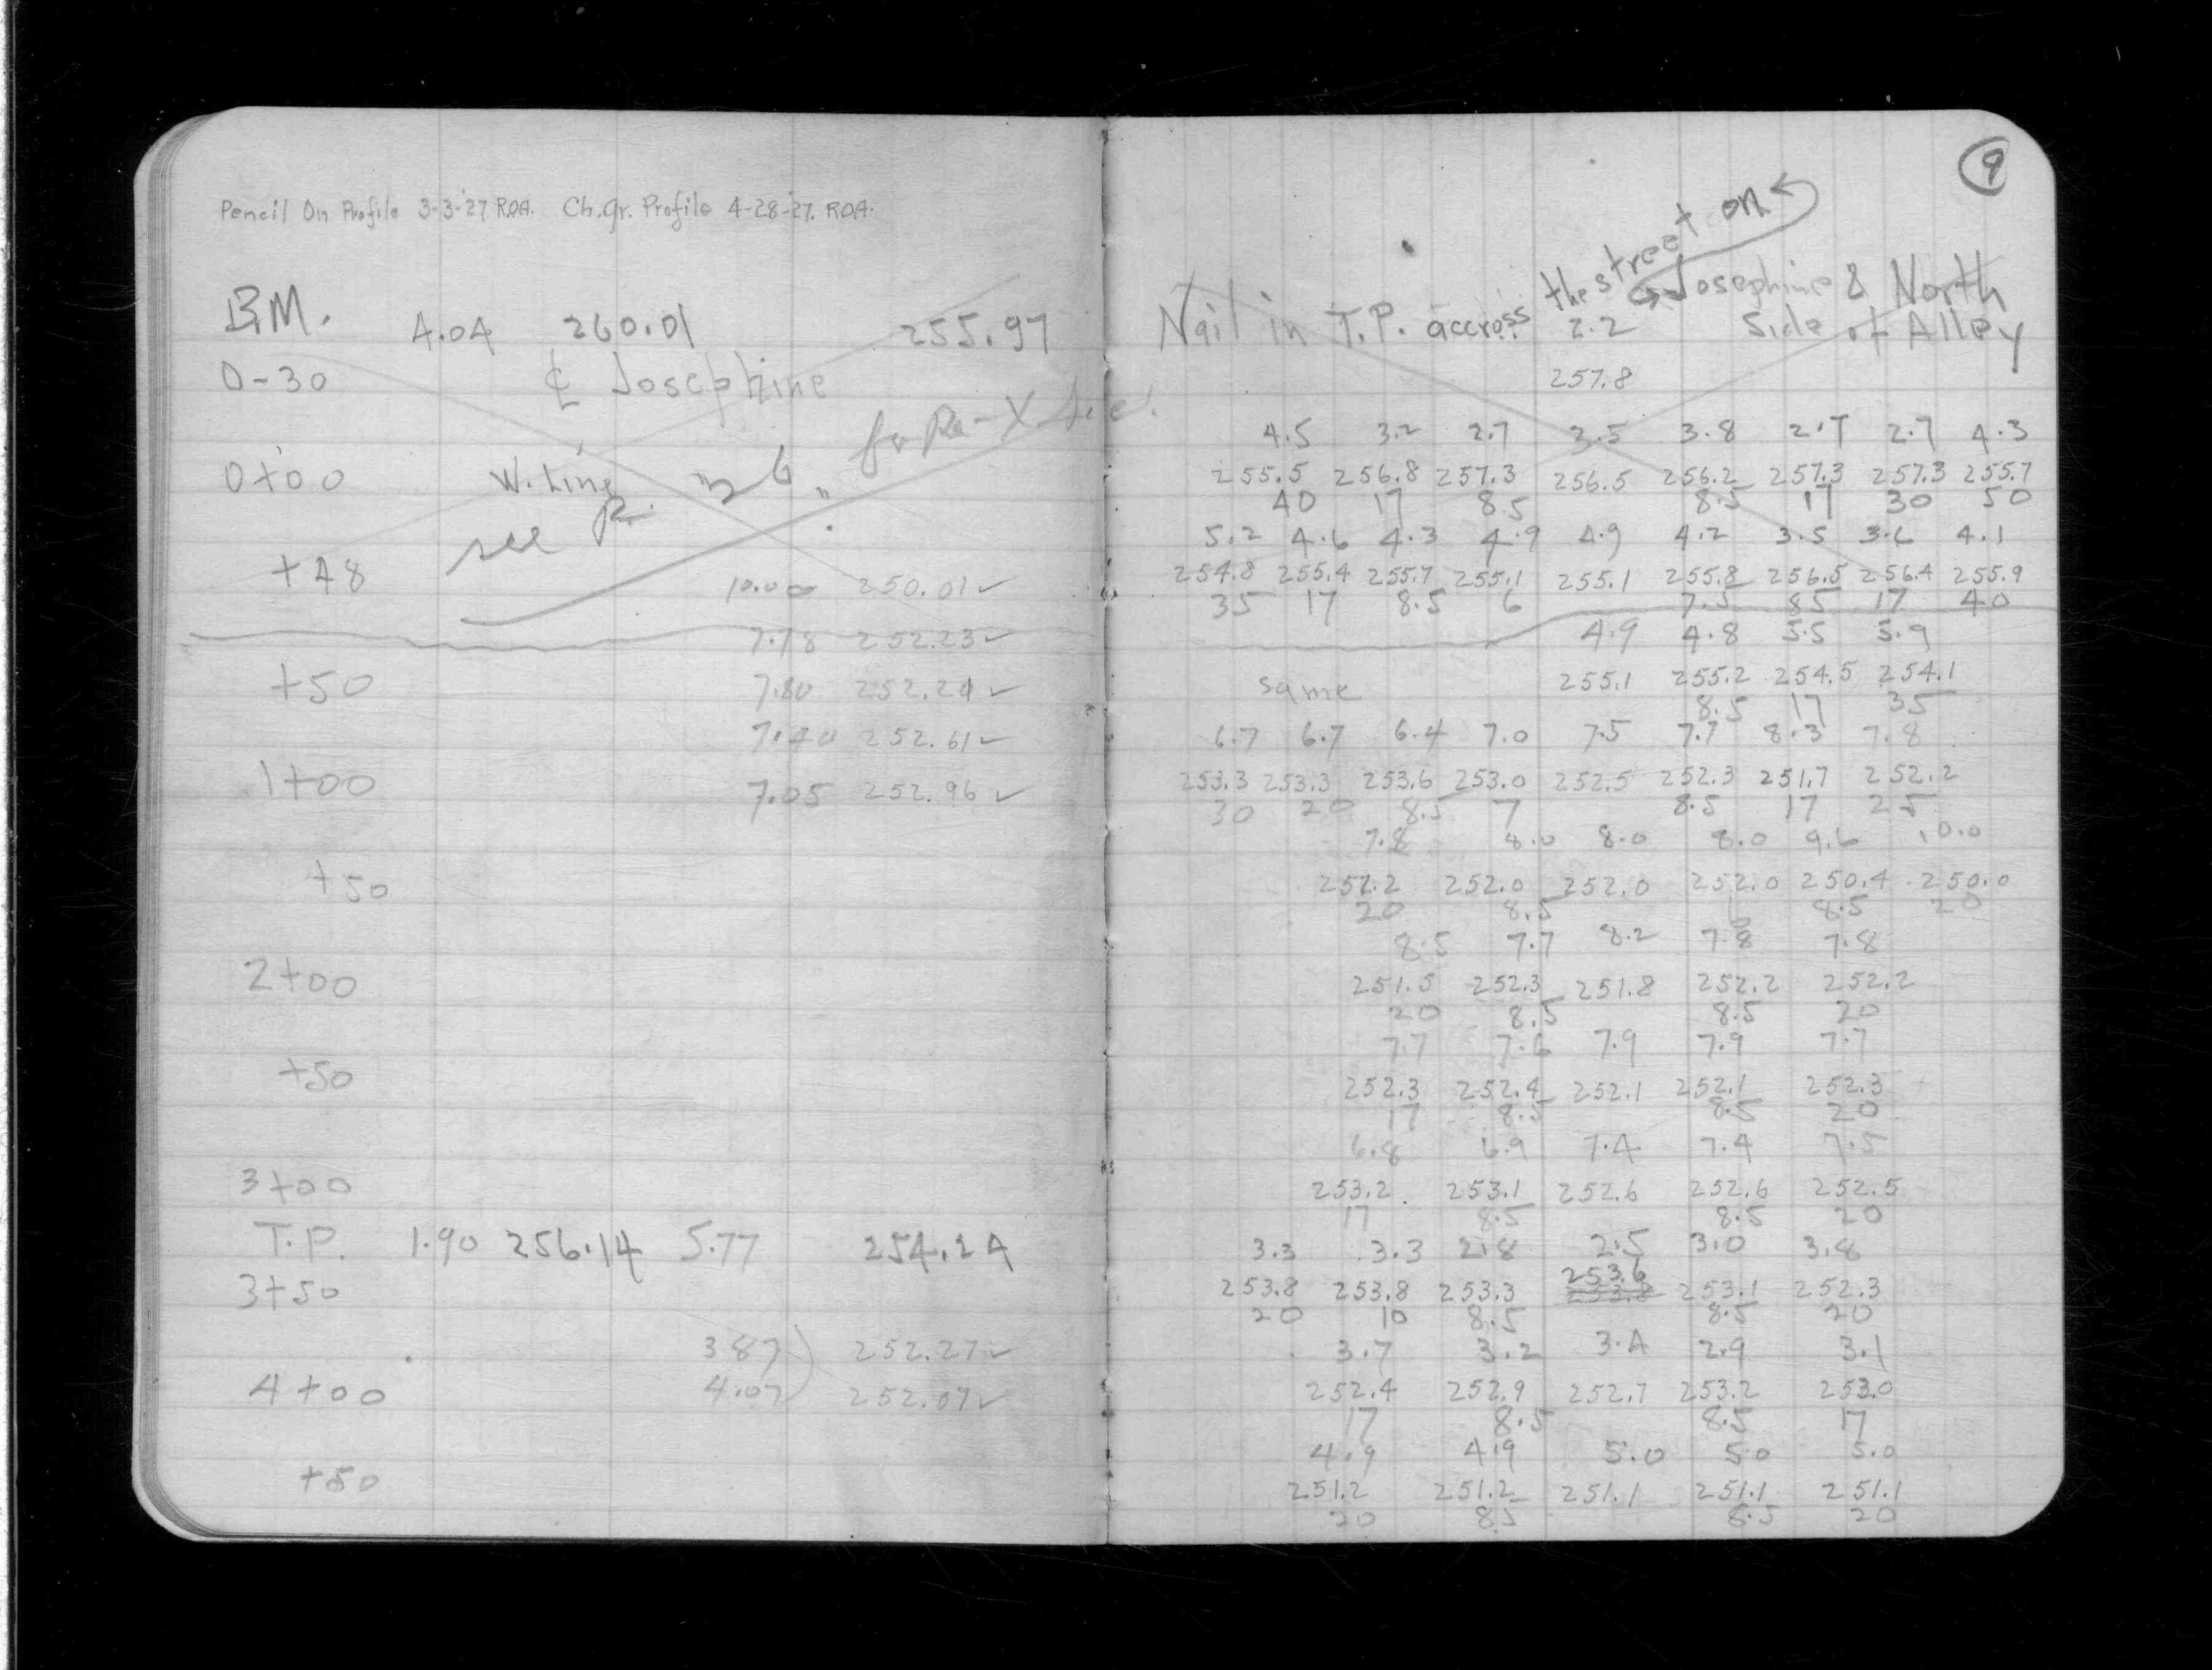 Pencil On Profile 3-3-'27 R.O.A. Ch.Gr. Profile 4-28-'27. R.O.A.
B.M. 4.04 260.01 255.97
0-30 ℄ Josephine
for Re-X
0+00 W. Line
see P. "26"
+48 10.00 250.01 ✓
7.78 252.23 ✓
+50 7.80 252.21 ✓
7.40 252.61 ✓
1+00 7.05 252.96 ✓
+50
2+00
+50
3+00
T.P. 1.90 256.14 5.77 254.24
3+50
3.87 252.27 ✓
4+00 4.07 252.07 ✓
+50
9
Nail in T.P. accross the street on Josephine & North
2.2 Side of Alley
257.8
4.5 3.2 2.7 3.5 3.8 2.7 2.7 4.3
255.5 256.8 257.3 256.5 256.2 257.3 257.3 255.7
40 17 8.5 8.5 17 30 50
5.2 4.6 4.3 4.9 4.9 4.2 3.5 3.6 4.1
254.8 255.4 255.7 255.1 255.1 255.8 256.5 256.4 255.9
35 17 8.5 6 7.5 8.5 17 40
4.9 4.8 5.5 5.9
same 255.1 255.2 254.5 254.1
8.5 17 35
6.7 6.7 6.4 7.0 7.5 7.7 8.3 7.8
253.3 253.3 253.6 253.0 252.5 252.3 251.7 252.2
30 20 8.5 7 8.5 17 25
7.8 8.0 8.0 8.0 9.6 10.0
252.2 252.0 252.0 252.0 250.4 250.0
20 8.5 8.5 20
8.5 7.7 8.2 7.8 7.8
251.5 252.3 251.8 252.2 252.2
20 8.5 8.5 20
7.7 7.6 7.9 7.9 7.7
252.3 252.4 252.1 252.1 252.3
17 8.5 8.5 20
6.8 6.9 7.4 7.4 7.5
253.2 253.1 252.6 252.6 252.5
17 8.5 8.5 20
3.3 3.3 2.8 2.5 3.0 3.8
253.6
253.8 253.8 253.3 253.8 253.1 252.3
20 10 8.5 8.5 20
3.7 3.2 3.4 2.9 3.1
252.4 252.9 252.7 253.2 253.0
17 8.5 8.5 17
4.9 4.9 5.0 5.0 5.0
251.2 251.2 251.1 251.1 251.1
20 8.5 8.5 20